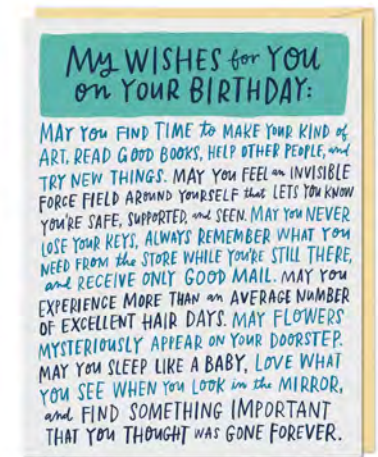 My WISHES for YOU
on YOUR BIRTHDAY:
MAY YOU FIND TIME to MAKE YOUR KIND of
ART, READ GOOD BOOKS, HELP OTHER PEOPLE, and
TRY NEW THINGS. MAY YOU FEEL an INVISIBLE
FORCE FIELD AROUND YOURSELF that LETS YOU KNOW
YOU'RE SAFE, SUPPORTED, and SEEN. MAY YOU NEVER
LOSE YOUR KEYS, ALWAYS REMEMBER WHAT YOU
NEED FROM the STORE WHILE YOU'RE STILL THERE,
and RECEIVE ONLY GOOD MAIL. MAY YOU
EXPERIENCE MORE THAN an AVERAGE NUMBER
OF EXCELLENT HAIR DAYS. MAY FLOWERS
MYSTERIOUSLY APPEAR ON YOUR DOORSTEP.
MAY YOU SLEEP LIKE A BABY, LOVE WHAT
YOU SEE WHEN YOU LOOK in the MIRROR,
and FIND SOMETHING IMPORTANT
THAT YOU THOUGHT WAS GONE FOREVER.